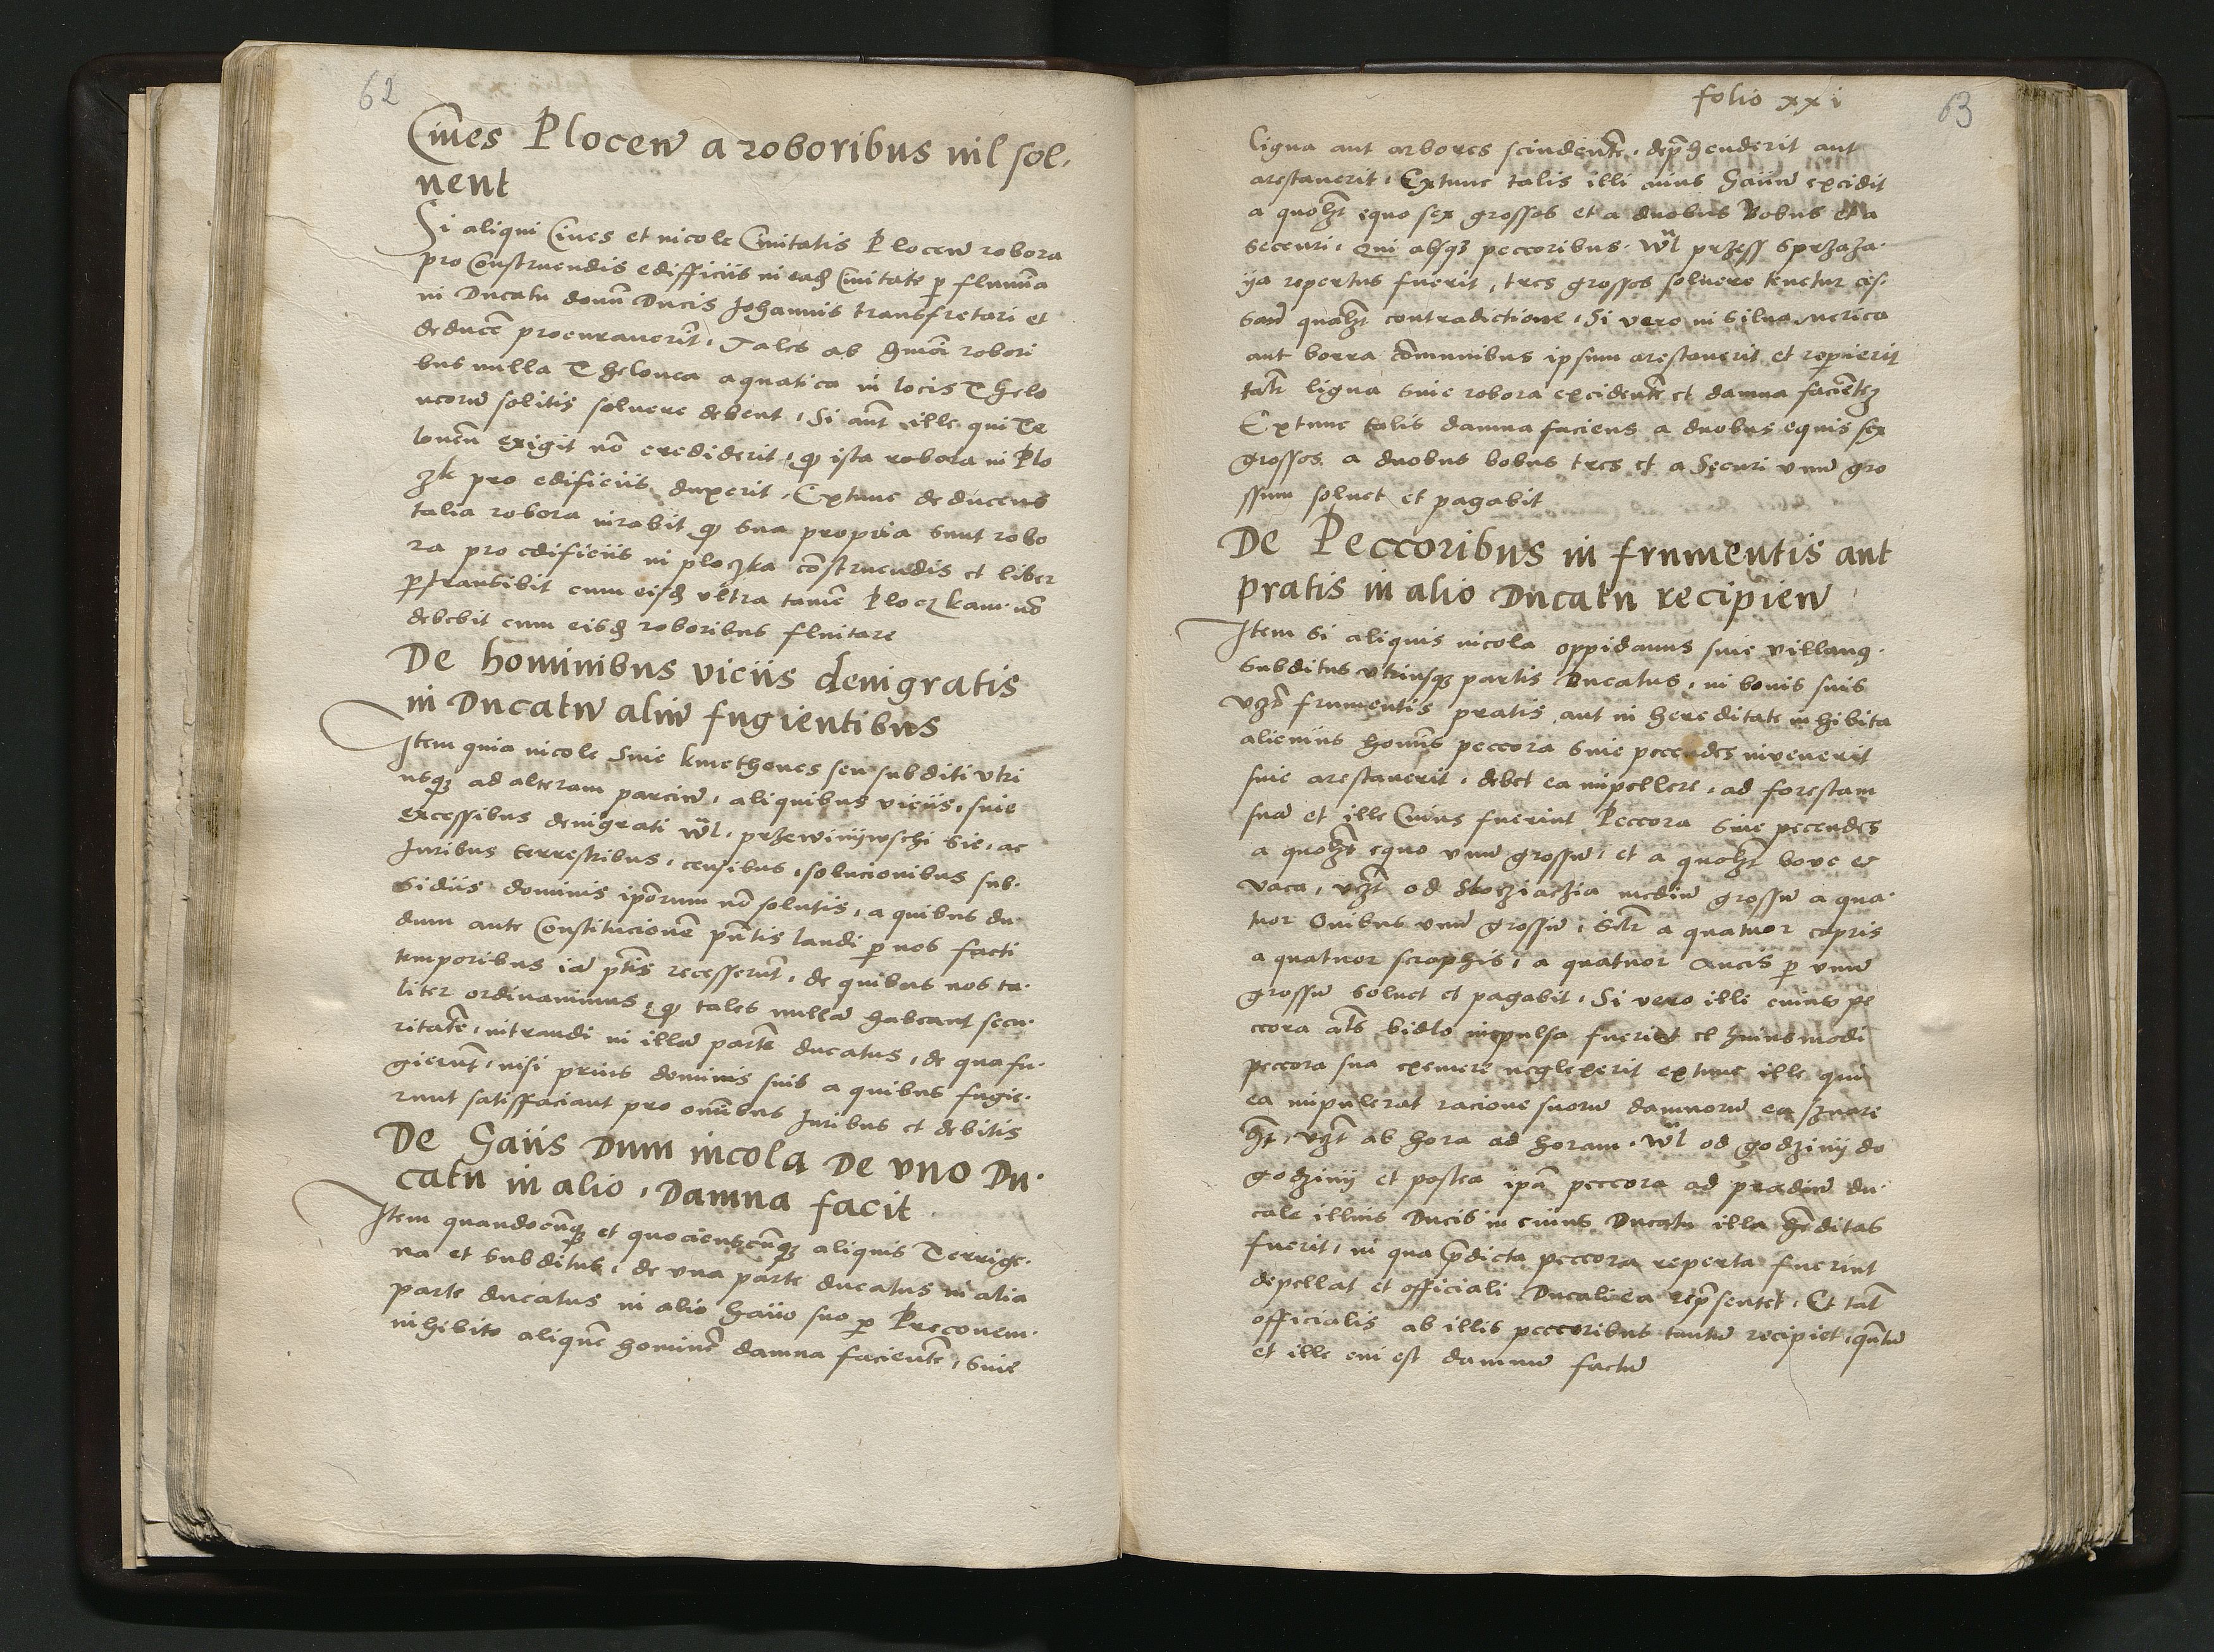 62
Ciues Plocen̄ a roboribus nil sol⸗
uent
Si aliqui Ciues et incole Ciuitatis Plocen̄ robora
pro Construendis edifficiis in eadē Ciuitate p̲ fluuiū̄a
in Ducatu domī Ducis Johannis transfretari et
deducē procurauerīt, Tales ab hm̄oi robori
bus nulla Thelonea aquatica in locis Thelo
neorū solitis soluere debent, Si aūt ille qui Te
loneū exigit nō crediderit, qͦ ista robora in Plo
czk pro edificiis duxerit, Extunc deducens
talia robora iurabit qͦ sua propria sunt robo
ra pro edificiis in ploczka cōstruendis et liber
p̲transibit cum eisdē vltra tamē Ploczkam nō
debebit cum eisdē roboribus fluitare
De hominibus viciis denigratis
in Ducatū aliū fugientibus
Item quia incole Siue kmethones seu subditi vtri
usqꝫ ad alteram parciū, aliquibus viciis, siue
excessibus denigrati wl̄, przewinijwschi sie, ac
Juribus terrestribus, censibus, solucionibus sub⸗
sidiis dominis ip̄orum nō solutis, a quibus du⸗
dum ante Constitucionē pn̄tis laudi p̲ nos facti
temporibus iā p̄tis recesserūt, de quibus nos ta⸗
liter ordinauimus, qͦ tales nullā habeant secu⸗
ritatē, intrandi in illā partē ducatus, de qua fu⸗
gierūt, nisi prius dominis suis a quibus fugie⸗
runt satisffaciant pro om̄ibus Juribus et debitis
De Gaiis Dum incola De vno Du⸗
catu in alio, Damna facit
Item quandocūqꝫ et quocienscūqꝫ aliquis Terrige⸗
na et subditus, de vna parte ducatus in alia
parte ducatus in alio haiio suo p̲ Preconem⸗
inhibito aliquē hominē damna facientē, siue
folio xxi
63
ligna aut arbores scindentē, dep̄henderit aut
arestauerit, Extunc talis illi cuius Gaiiū excidit
a quolꝫt equo sex grossos et a duobus Bobus et a
securi, Qui absqꝫ peccoribus, wl̄ przess sprzaza⸗
ija repertus fuerit, tres grossos soluere tenetur ces⸗
san̄ qualꝫt contradictione, Si vero in silua merica
aut borra cōmunibus ipsum arestauerit et repierit
talr̄ ligna siue robora excidentē et damna faciētē
Extunc talis damna faciens a duobus equis sex
grossos, a duobus bobus tres et a Securi vnū gro
ssum soluet et pagabit
De Peccoribus in frumentis aut
pratis in alio Ducatu recipien̄
Item si aliquis incola oppidanus siue villanꝰ
subditus vtriusqꝫ partis Ducatus, in bonis suis
vꝫt frumentis pratis aut in hereditate inhibita
alienius homīs peccora siue peccudes inuenerit
siue arestauerit, debet ea impellere, ad forestam
suā et ille Cuius fuerint Peccora siue peccudes
a quolꝫt equo vnū grossū, et a quolꝫt boue et
vaca, vꝫt od Skocziaczia mediū grossū a qua⸗
tuor Ouibus vnū grossū, siłr a quatuor capris
a quatuor scrophis, a quatuor Aucis p̲ vnū
grossū soluet et pagabit, Si vero illi cuius pe
ccora al̄s bidlo impulsa fuerint et huiusmodi
peccora sua exemere neglexerit extunc ille qui
ea impulerat racione suorū damnorū ea scruare
hꝫt, vꝫt ab hora ad horam, wl̄ od godzinij do
godzinij et postea ip̄a peccora ad prediū du⸗
cale illius Ducis in cuius Ducatu illa hēditas
fuerit, in qua p̄dicta peccora reperta fuerint
depellat et officiali Ducali ea rep̄sentet, Et tal̄
officialis ab illis peccoribus tantū recipiet, qn̄tū
et ille cui est damnū factū